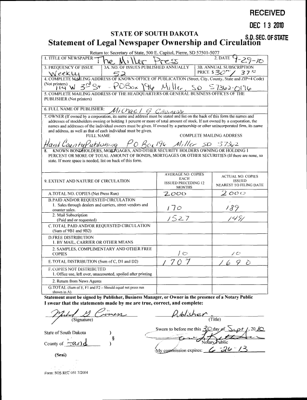 RECEIVED
DEC 13 2010
S.D. SEC. OF STATE
STATE OF SOUTH DAKOTA
Return to: Secretary of State, 500 E. Capitol, Pierre, SD 57501-5077
Statement of Legal Newspaper Ownership and Circulation
1. TITLE OF NEWSPAPER The Miller Press
2. DATE 9-29-10
3. FREQUENCY OF ISSUE Weekly
3A. NO. OF ISSUES PUBLISHED ANNUALLY 52
3B. ANNUAL SUBSCRIPTION PRICE
4. COMPLETE MAILING ADDRESS OF KNOWN OFFICE OF PUBLICATION (Street, City, County, State and ZIP+4 Code) (Not printers)
114 W 3rd St PO Box 196 Miller SD 57362-0196
5. COMPLETE MAILING ADDRESS OF THE HEADQUARTERS OF GENERAL BUSINESS OFFICES OF THE PUBLISHER (Not printers)
6. FULL NAME OF PUBLISHER: Michael
7. OWNER (If owned by a corporation, its name and address must be stated and list on the back of this form the names and addresses of stockholders owning or holding 1 percent or more of total amount of stock. If not owned by a corporation, the names and addresses of the individual owners must be given. If owned by a partnership or other unincorporated firm, its name and address, as well as that of each individual must be given.
FULL NAME COMPLETE MAILING ADDRESS
Hand County Publishing P O Box 196 Miller SD 57362
8. KNOWN BONDHOLDERS, MORTGAGES, AND OTHER SECURITY HOLDERS OWNING OR HOLDING 1 PERCENT OR MORE OF TOTAL AMOUNT OF BONDS, MORTGAGES OR OTHER SECURITIES (If there are none, so state. If more space is needed, list on back of this form.
9. EXTENT AND NATURE OF CIRCULATION
AVERAGE NO. COPIES EACH ISSUED PRECEDING 12 MONTHS
ACTUAL NO. COPIES ISSUED NEAREST TO FILING DATE
A. TOTAL NO. COPIES (Net Press Run) 2000 2000
B. PAID AND/OR REQUESTED CIRCULATION
1. Sales through dealers and carriers, street vendors and counter sales 170 189
2. Mail Subscription (Paid and/or requested) 1527 1491
C. TOTAL PAID AND/OR REQUESTED CIRCULATION (Sum of 9B1 and 9B2)
D. FREE DISTRIBUTION
1. BY MAIL, CARRIER OR OTHER MEANS
2. SAMPLES, COMPLIMENTARY AND OTHER FREE COPIES 10 10
E. TOTAL DISTRIBUTION (Sum of C, D1 and D2) 1707 1690
F. COPIES NOT DISTRIBUTED
1. Office use, left over, unaccounted, spoiled after printing
2. Return from News Agents
G. TOTAL (Sum of E, F1 and F2 - Should equal net press run shown in A)
Statement must be signed by Publisher, Business Manager, or Owner in the presence of a Notary Public
I swear that the statements made by me are true, correct, and complete:
Publisher
(Signature) (Title)
State of South Dakota )
County of Hand )
Sworn to before me this 30 day of Sept, 2010
Notary Public
My commission expires: 6-26-13
(Seal)